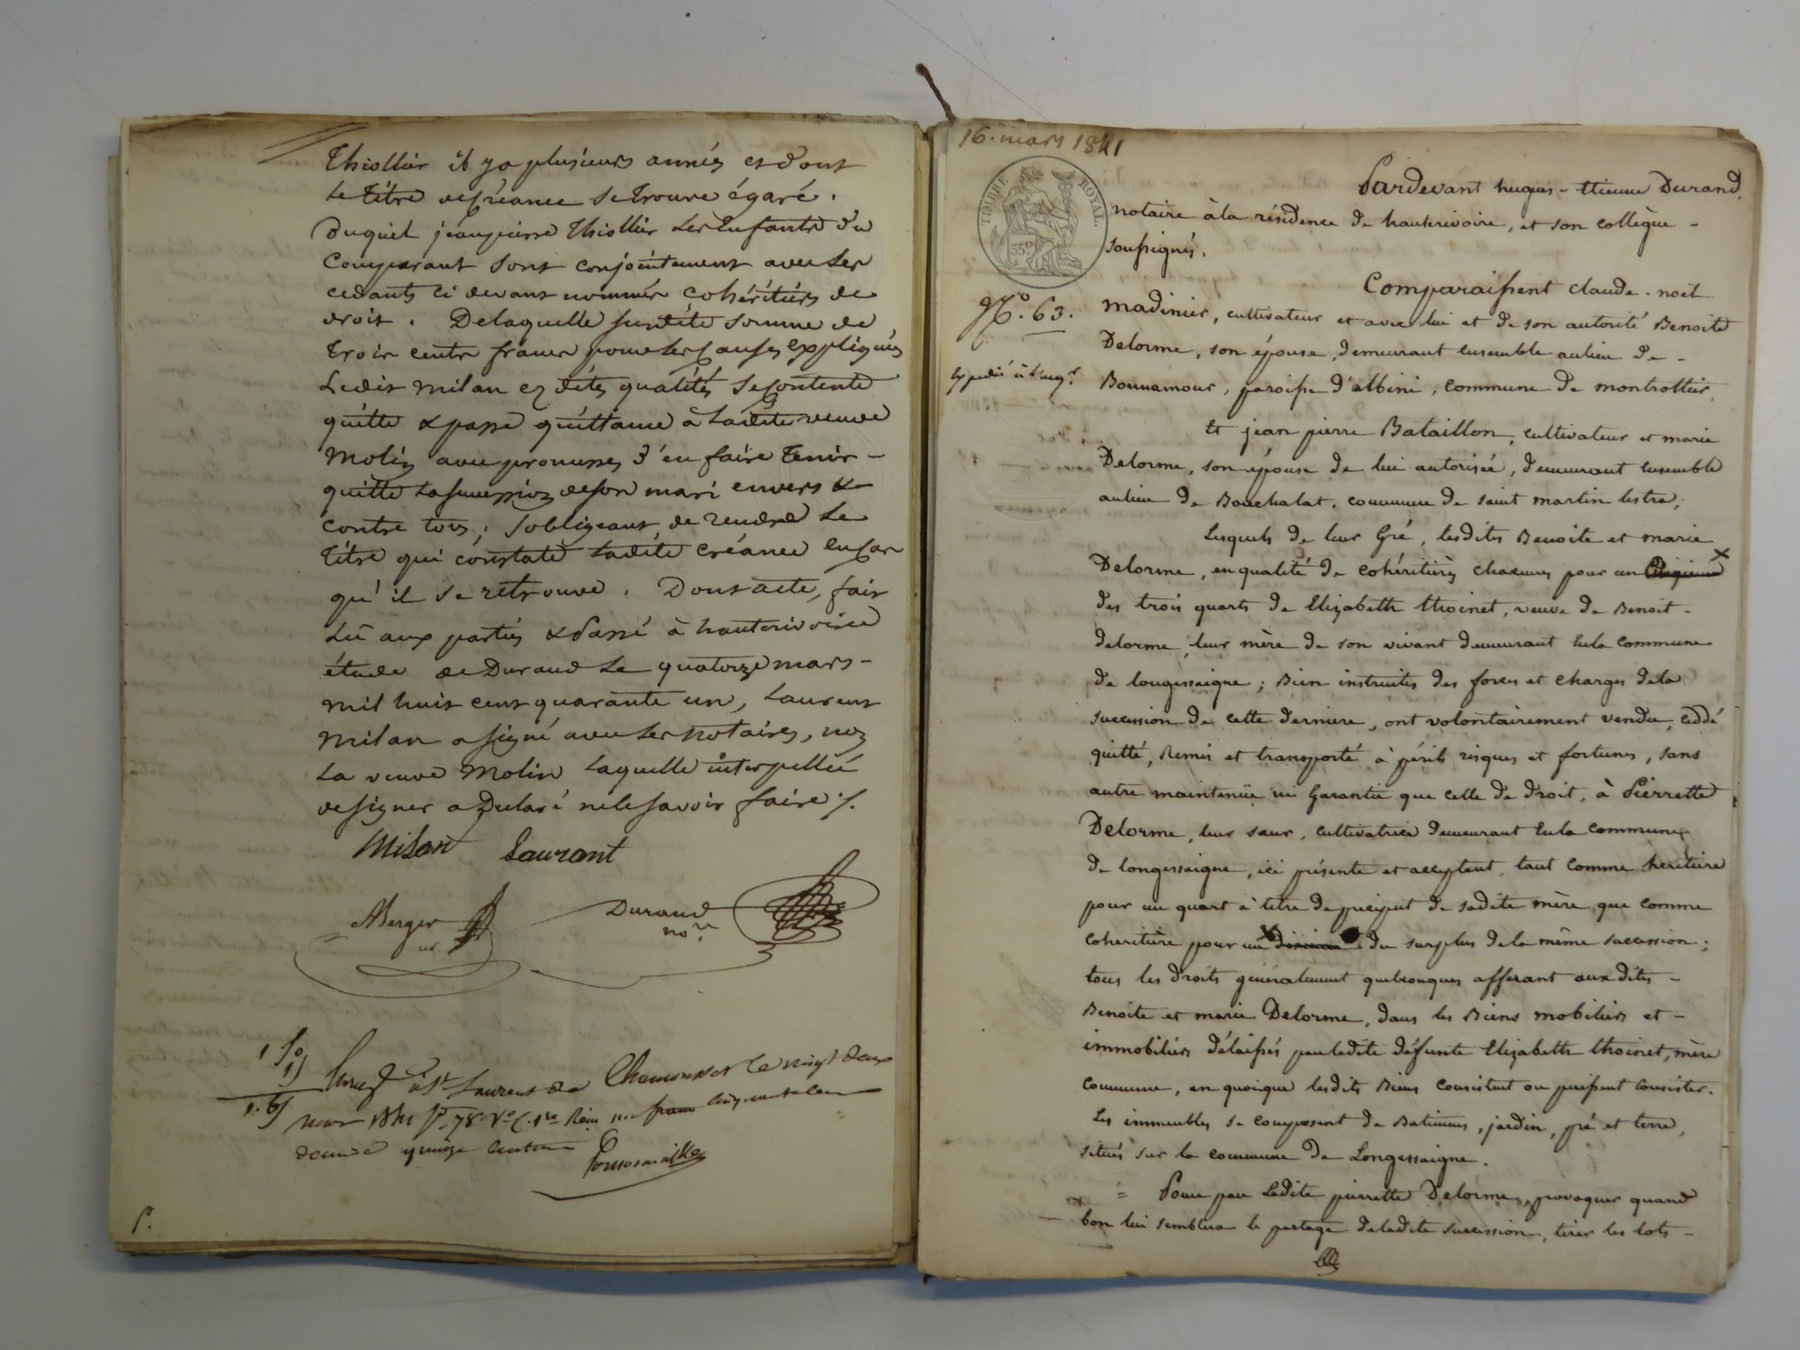 Thiollier il ya plusieurs années et dont
le titre de créance se trouve égaré.
Duquel jeanpierre Thiollier les Enfants du
Comparant sont conjointement avec les
cedants ci devant nommés cohéritiers de
droit. De laquelle susdite somme de
trois cents francs pour les causes expliquées
Ledit Milan ez dites qualités se contente
quitte & passe quittance à Ladite veuve
Molin avec promesse d'en faire tenir -
quitte la succession de son mari envers &
contre tous; s'obligeant de rendre Le
titre qui constate Ladite créance en cas
qu'il se retrouve. Dont acte, fait
Lû aux parties & Passé à hauterivoire
étude de Durand Le quatorze mars -
mil huit cent quarante un, Laurent
Milan a signé avec Les notaires, non
La veuve Molin Laquelle interpellée
de signer a Déclaré ne le savoir faire /.
Milan Laurant
ABerger nre Durand nore
1 f 5
Enreg à St Laurent de Chamousset le vingt deux
mars 1841 f° 78 V° C. 1re Reçu un franc cinquante cen
decime quinze centimes
P.
16. mars 1841
TIMBRE ROYAL
35c
Pardevant hugues-Etienne Durand,
notaire à la résidence de hauterivoire, et son collègue -
soussignés.
Comparaissent claude-noël
N°. 63.
madinier, cultivateur et avec lui et de son autorité Benoite
Delorme, son épouse, demeurant ensemble au lieu de -
Bonnamour, paroisse d'albini, commune de montrottier,
Et jean pierre Bataillon, cultivateur et marie
Delorme, son épouse de lui autorisée, demeurant ensemble
au lieu de Bouchalat, commune de saint martin lestra;
Lesquels de leur Gré, lesdites Benoite et marie
Delorme, en qualité de cohéritières chacunes pour un
des trois quarts de Elizabeth thoinet, veuve de Benoit -
delorme, leur mère de son vivant demeurant En la commune
de longessaigne; Bien instruites des forces et charges de la
succession de cette derniere, ont volontairement vendu, cédé
quitté, Remis et transporté à périls risques et fortunes, sans
autre maintenüe ni Garantie que celle de droit, à Pierrette
Delorme, leur sœur, cultivatrice demeurant En la commune
de longessaigne, ici présente et acceptant, tant comme héritière
pour un quart à titre de préciput de sadite mère, que comme
coheritière pour un du surplus de la même succession;
tous les droits généralement quelconques afférant aux dites -
Benoite et marie Delorme, dans les Biens mobiliers et -
immobiliers délaissés par ladite défunte Elizabeth thoinet, mère
commune, en quoique lesdits Biens consistent ou puissent consister.
Les immeubles se composent de Batimens, jardin, pré et terre,
situés sur la commune de Longessaigne.
= Pour par Ladite pierrette Delorme, provoquer quand
bon lui semblera le partage de ladite succession, tirer les lots -